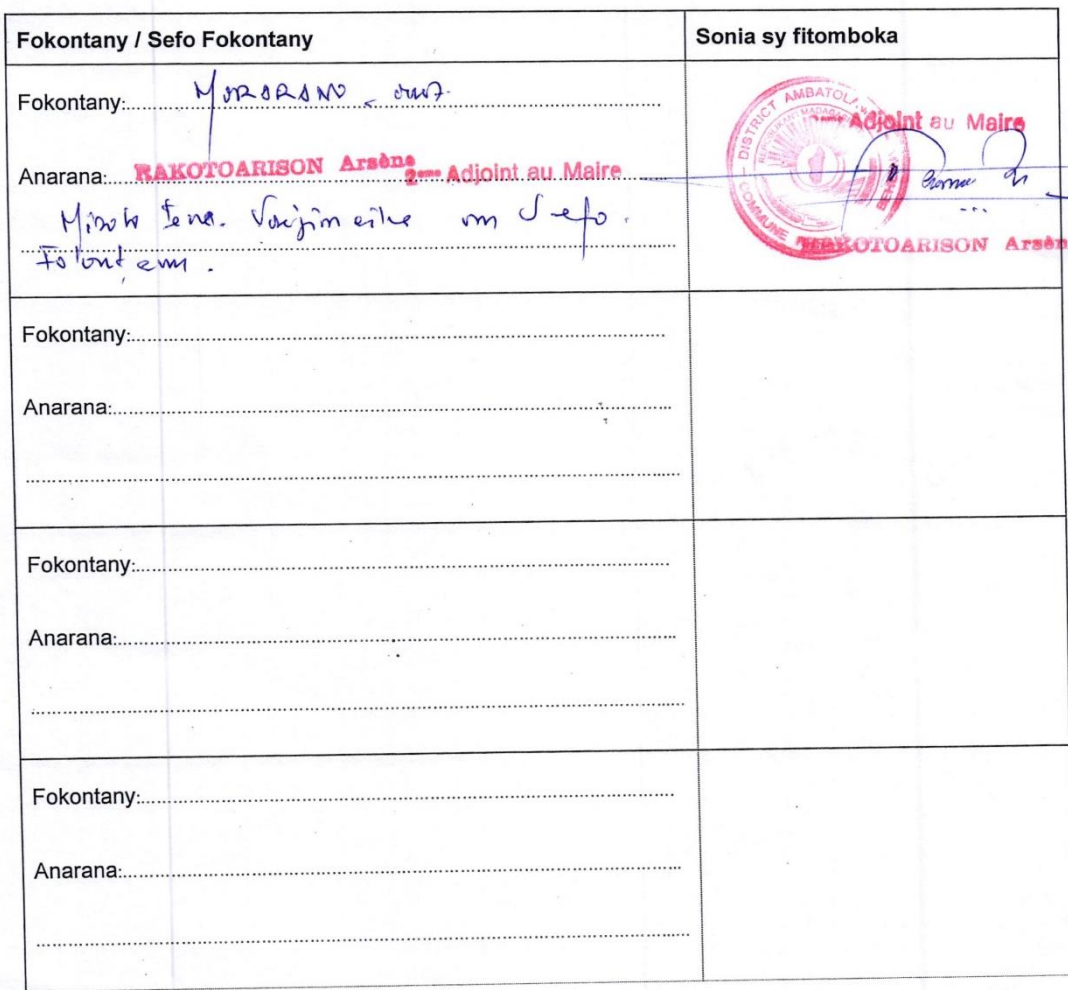 Fokontany / Sefo Fokontany
Sonia sy fitomboka
Fokontany: MORARANO
Anarana: RAKOTOARISON Arsène 2eme Adjoint au Maire
tena. Sefo
DISTRICT AMBATOLA
COMMUNE
Adjoint au Maire
RAKOTOARISON Arsèn
Fokontany:
Anarana:
Fokontany:
Anarana:
Fokontany:
Anarana: